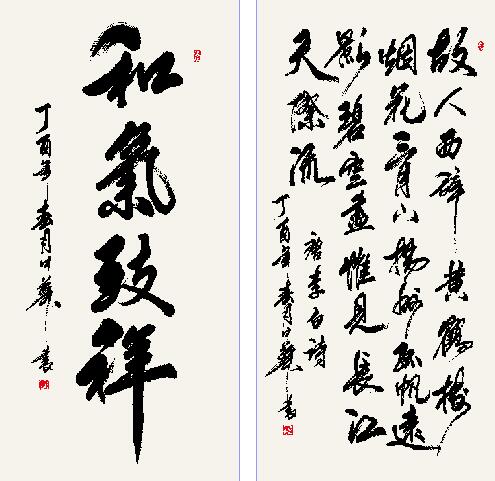 和氣致祥
丁酉年春月日
故人西辭黄鶴樓
烟花三月下揚州孤帆遠
影碧空盡惟見長江
天際流
唐李白詩
丁酉年春月日